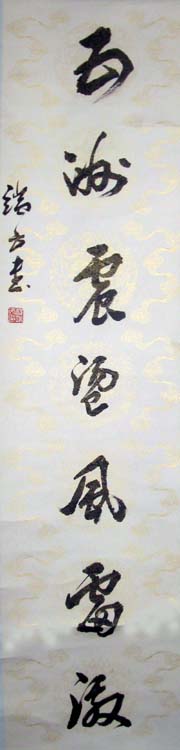 五洲震盪風雷激
端方書